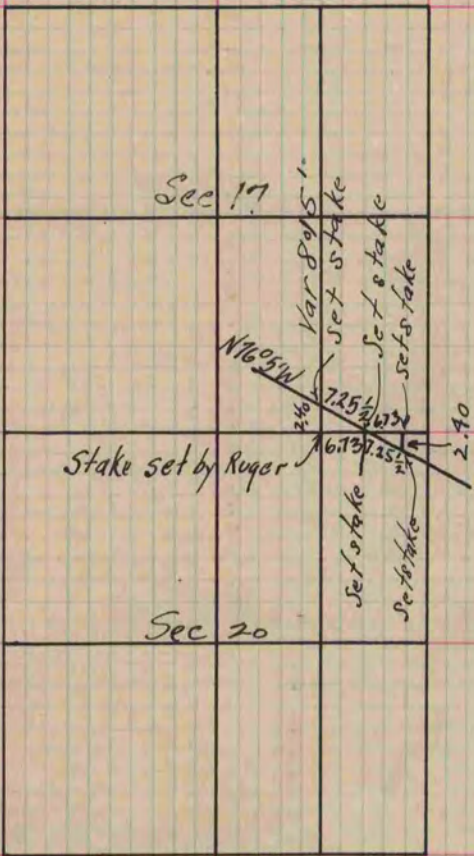 Sec 17
Var 8°15'
set stake
Set stake
set stake
N76°5'W
2.40
7.25½
6.73
Stake set by Ruger
6.73
7.25½
2.40
Set stake
Set stake
Sec 20